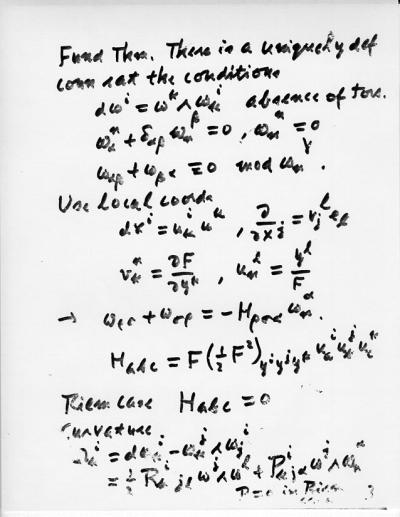 Fund Thm. There is a uniquely def
conn sat the conditions
dω^i = ω^k ∧ ω_k^i absence of tors.
ω_α^n + δ_αβ ω_n^β = 0, ω_n^n = 0
ω_αβ + ω_βα ≡ 0 mod ω_n^γ.
Use local coords
dx^i = u_k^i ω^k, ∂/∂x^j = v_j^l e_l
v_k^n = ∂F/∂y^k, u_n^l = y^l/F
→ ω_ρσ + ω_σρ = -H_ρσα ω_n^α.
H_abc = F(½F²)_{y^i y^j y^k} u_a^i u_b^j u_c^k
Riem case H_abc = 0
Curvature
= ½ R_k^i_jl ω^j ∧ ω^l + P_k^i_jα ω^j ∧ ω_n^α
P=0 in Riem